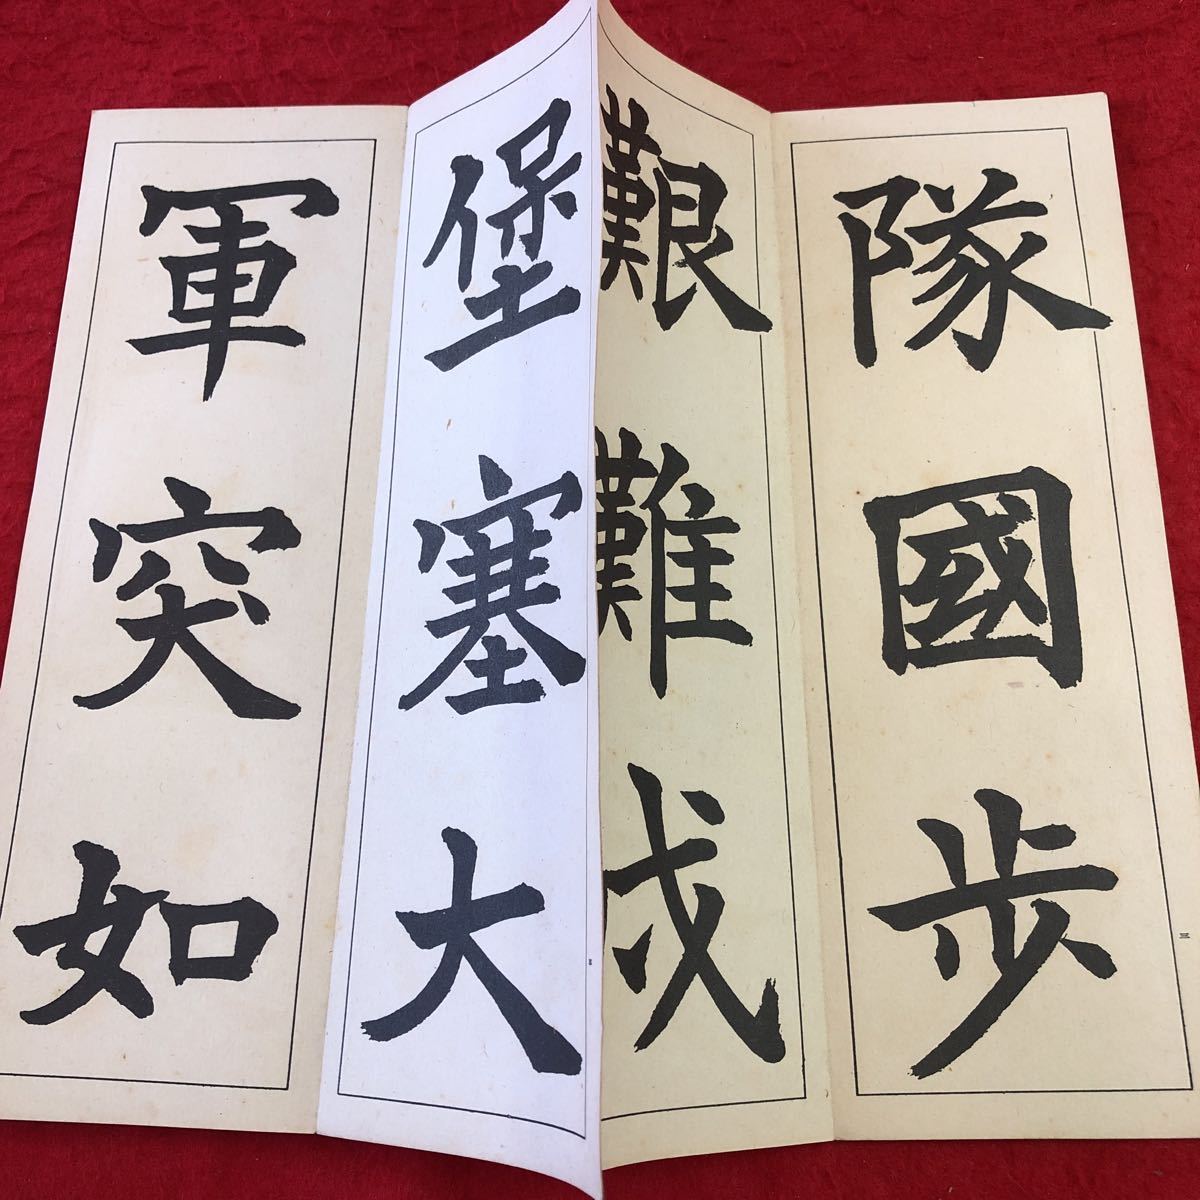 隊國步
艱難戍
堡塞大
軍突如
三